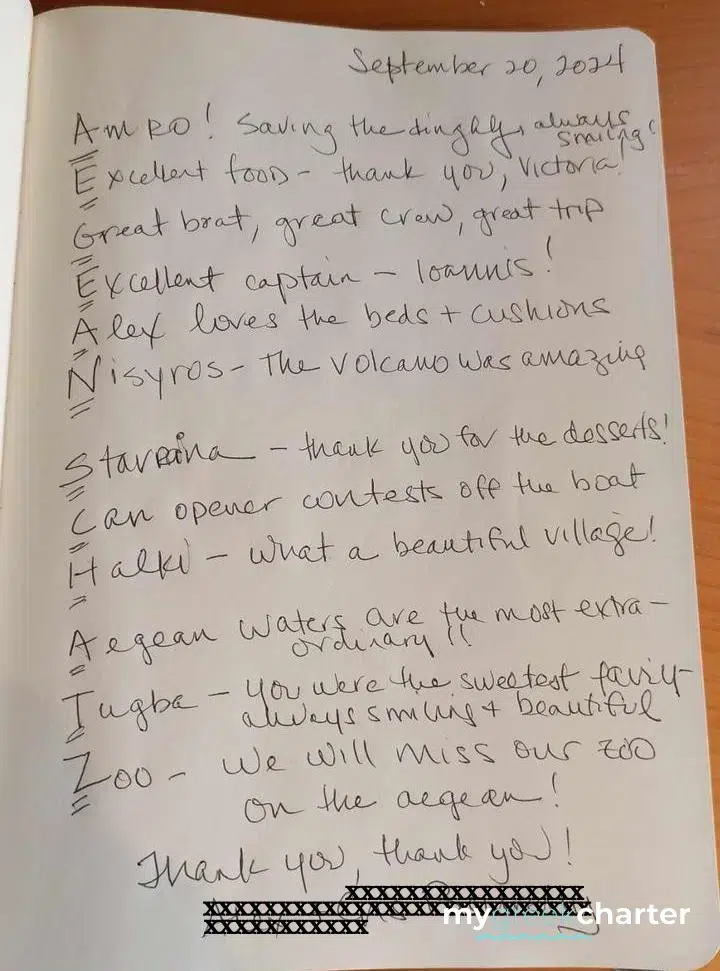 September 20, 2024
AMRO! Saving the dinghy, always
smiling!
Excellent food - thank you, Victoria!
Great boat, great crew, great trip
Excellent captain - Ioannis!
Alex loves the beds + cushions
Nisyros - The volcano was amazing
Stavraina - thank you for the desserts!
Can opener contests off the boat
Halki - what a beautiful village!
Aegean waters are the most extra-
ordinary!!
Tugba - you were the sweetest fairy-
always smiling + beautiful
Zoo - We will miss our zoo
on the aegean!
Thank you, thank you!
mygreekcharter